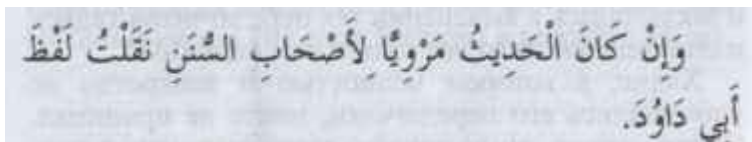 وَإِنْ كَانَ الْحَدِيثُ مَرْوِيًّا لِأَصْحَابِ السُّنَنِ نَقَلْتُ لَفْظَ
أَبِي دَاوُدَ.